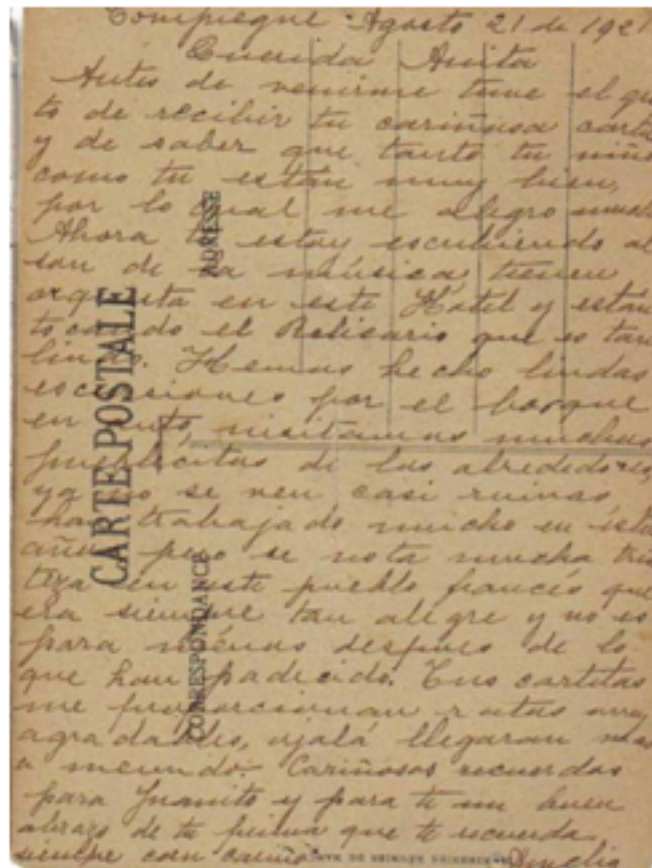 Compiegne Agosto 21 de 1921
Querida Anita
Antes de venirme tuve el gus
to de recibir tu cariñosa carta
y de saber que tanto tu niño
como tu están muy bien,
por lo cual me alegro mucho
Ahora te estoy escribiendo al
son de la música, tienen
orquesta en este Hotel y están
tocando el Relicario que es tan
lindo. Hemos hecho lindas
escursiones por el bosque
en auto, visitamos muchos
pueblecitos de los alrededores,
ya no se ven casi ruinas,
han trabajado mucho en este
año, pero se nota mucha tris
teza en este pueblo francés que
era siempre tan alegre y no es
para menos despues de lo
que han padecido. Tus cartitas
me proporcionan ratos muy
agradables, ojalá llegaran mas
a menudo. Cariñosos recuerdos
para Juanito y para ti un buen
abrazo de tu prima que te recuerda
siempre con cariño Amelia
CARTE POSTALE
CORRESPONDANCE
ADRESSE